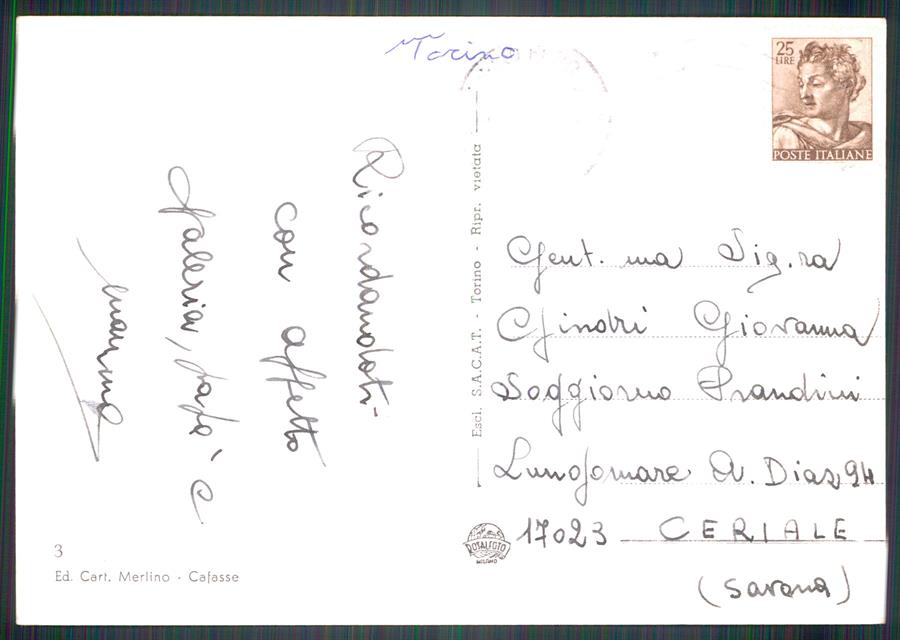 Torino
25
LIRE
POSTE ITALIANE
Ricordandoti
con affetto
Valeria, papà e
mamma
Escl. S.A.C.A.T. - Torino - Ripr. vietata
Gent.ma Sig.ra
Ghindri Giovanna
Soggiorno Prandini
Lungomare A. Diaz 94
17023 CERIALE
(Savona)
ROTALFOTO
MILANO
3
Ed. Cart. Merlino - Cafasse